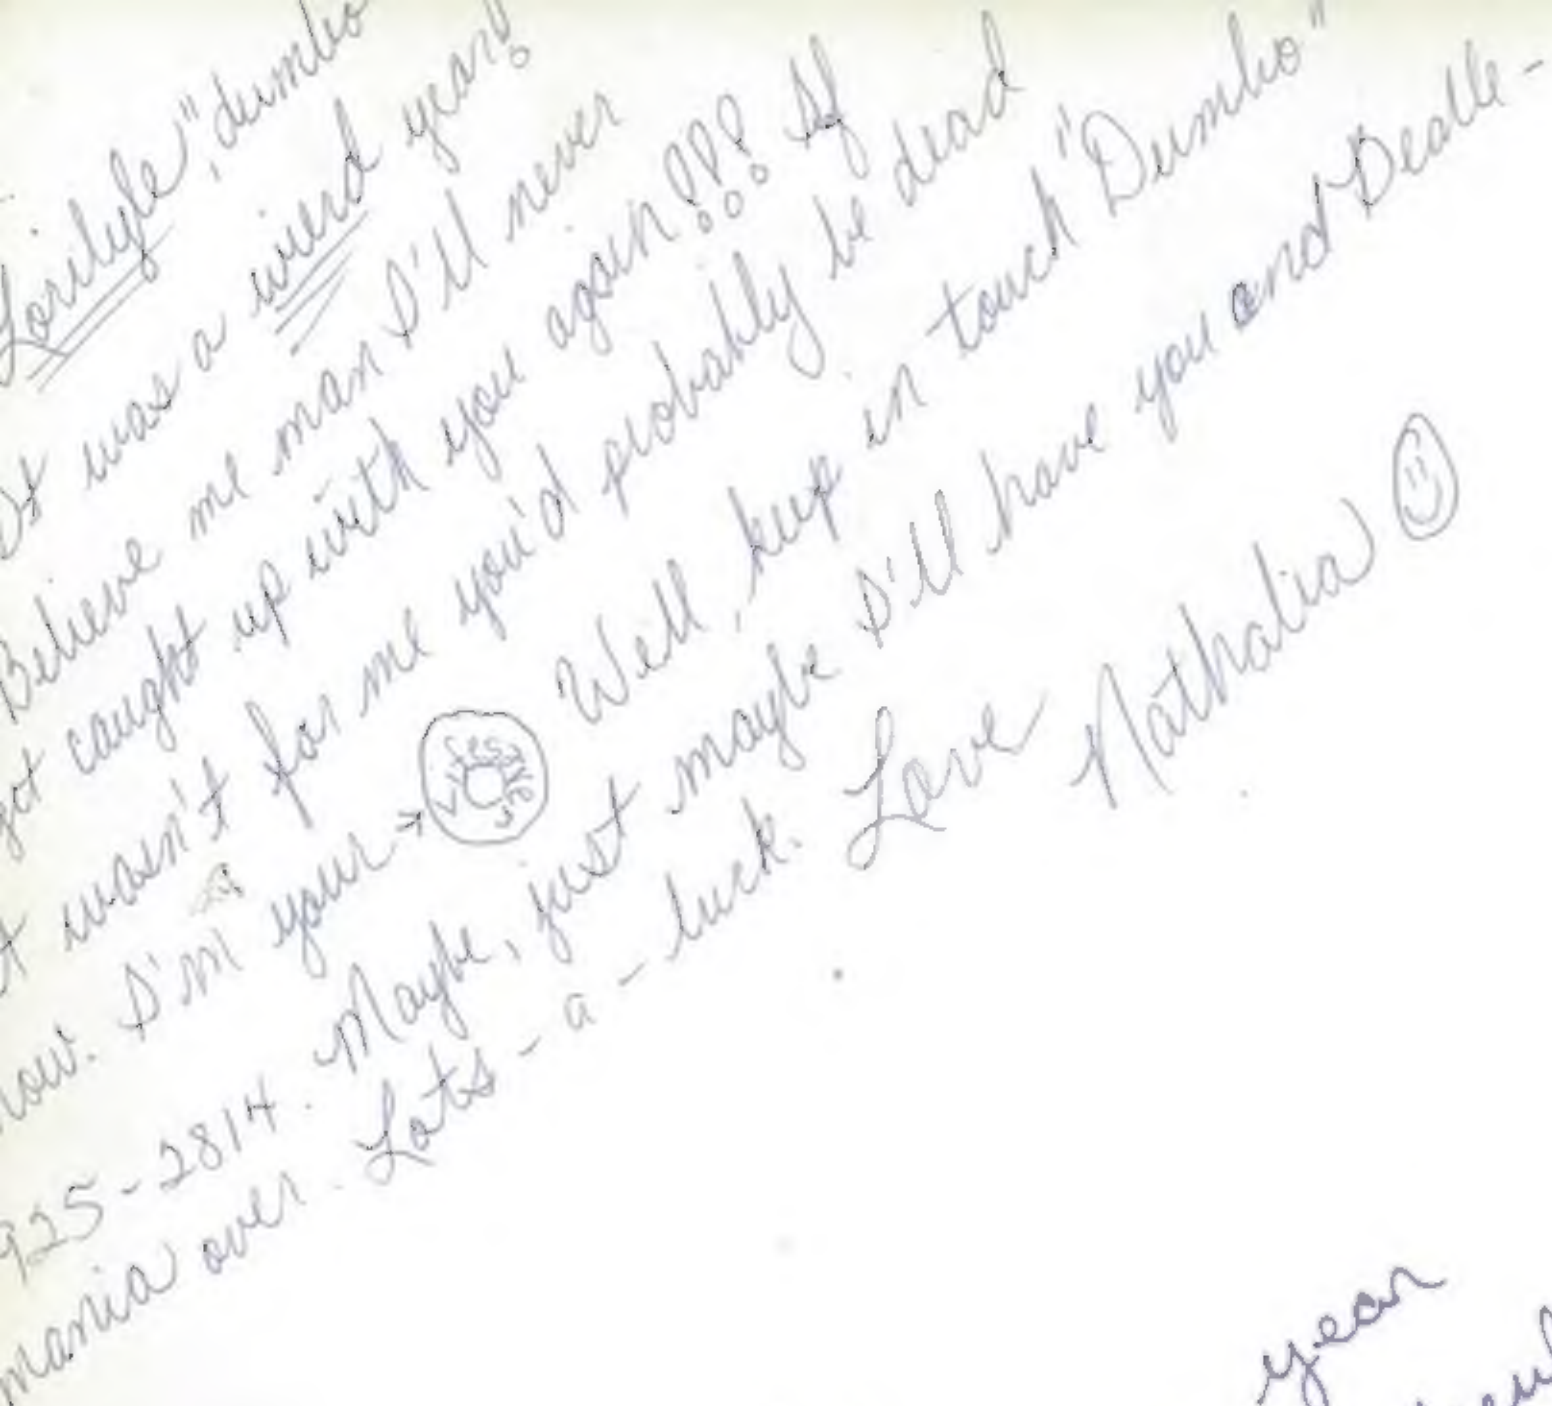 Lorilyle", "dumbo
It was a wierd year!
Believe me man I'll never
get caught up with you again!!! If
it wasn't for me you'd probably be dead
now. I'm your → Well, keep in touch "Dumbo"
925-2814. Maybe, just maybe I'll have you and Beatle-
mania over. Lots-a-luck. Love Nathalia
year